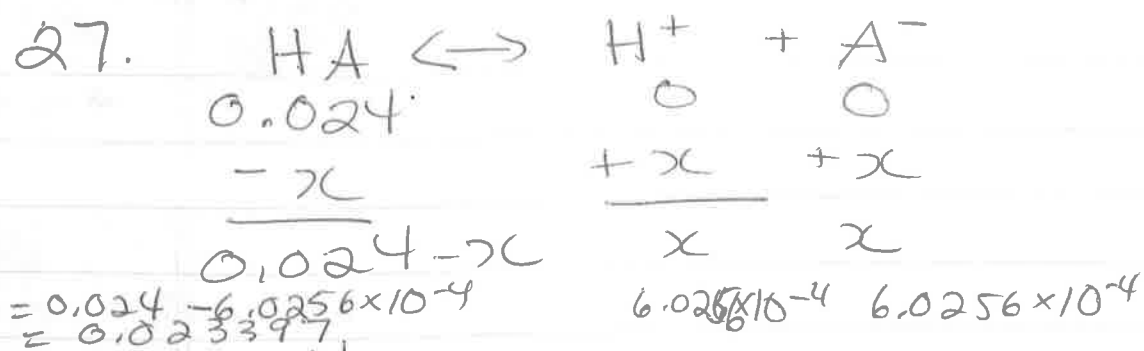 27. HA <-> H⁺ + A⁻
0.024 0 0
-x +x +x
0.024-x x x
= 0.024 - 6.0256×10⁻⁴ 6.0256×10⁻⁴ 6.0256×10⁻⁴
= 0.023397